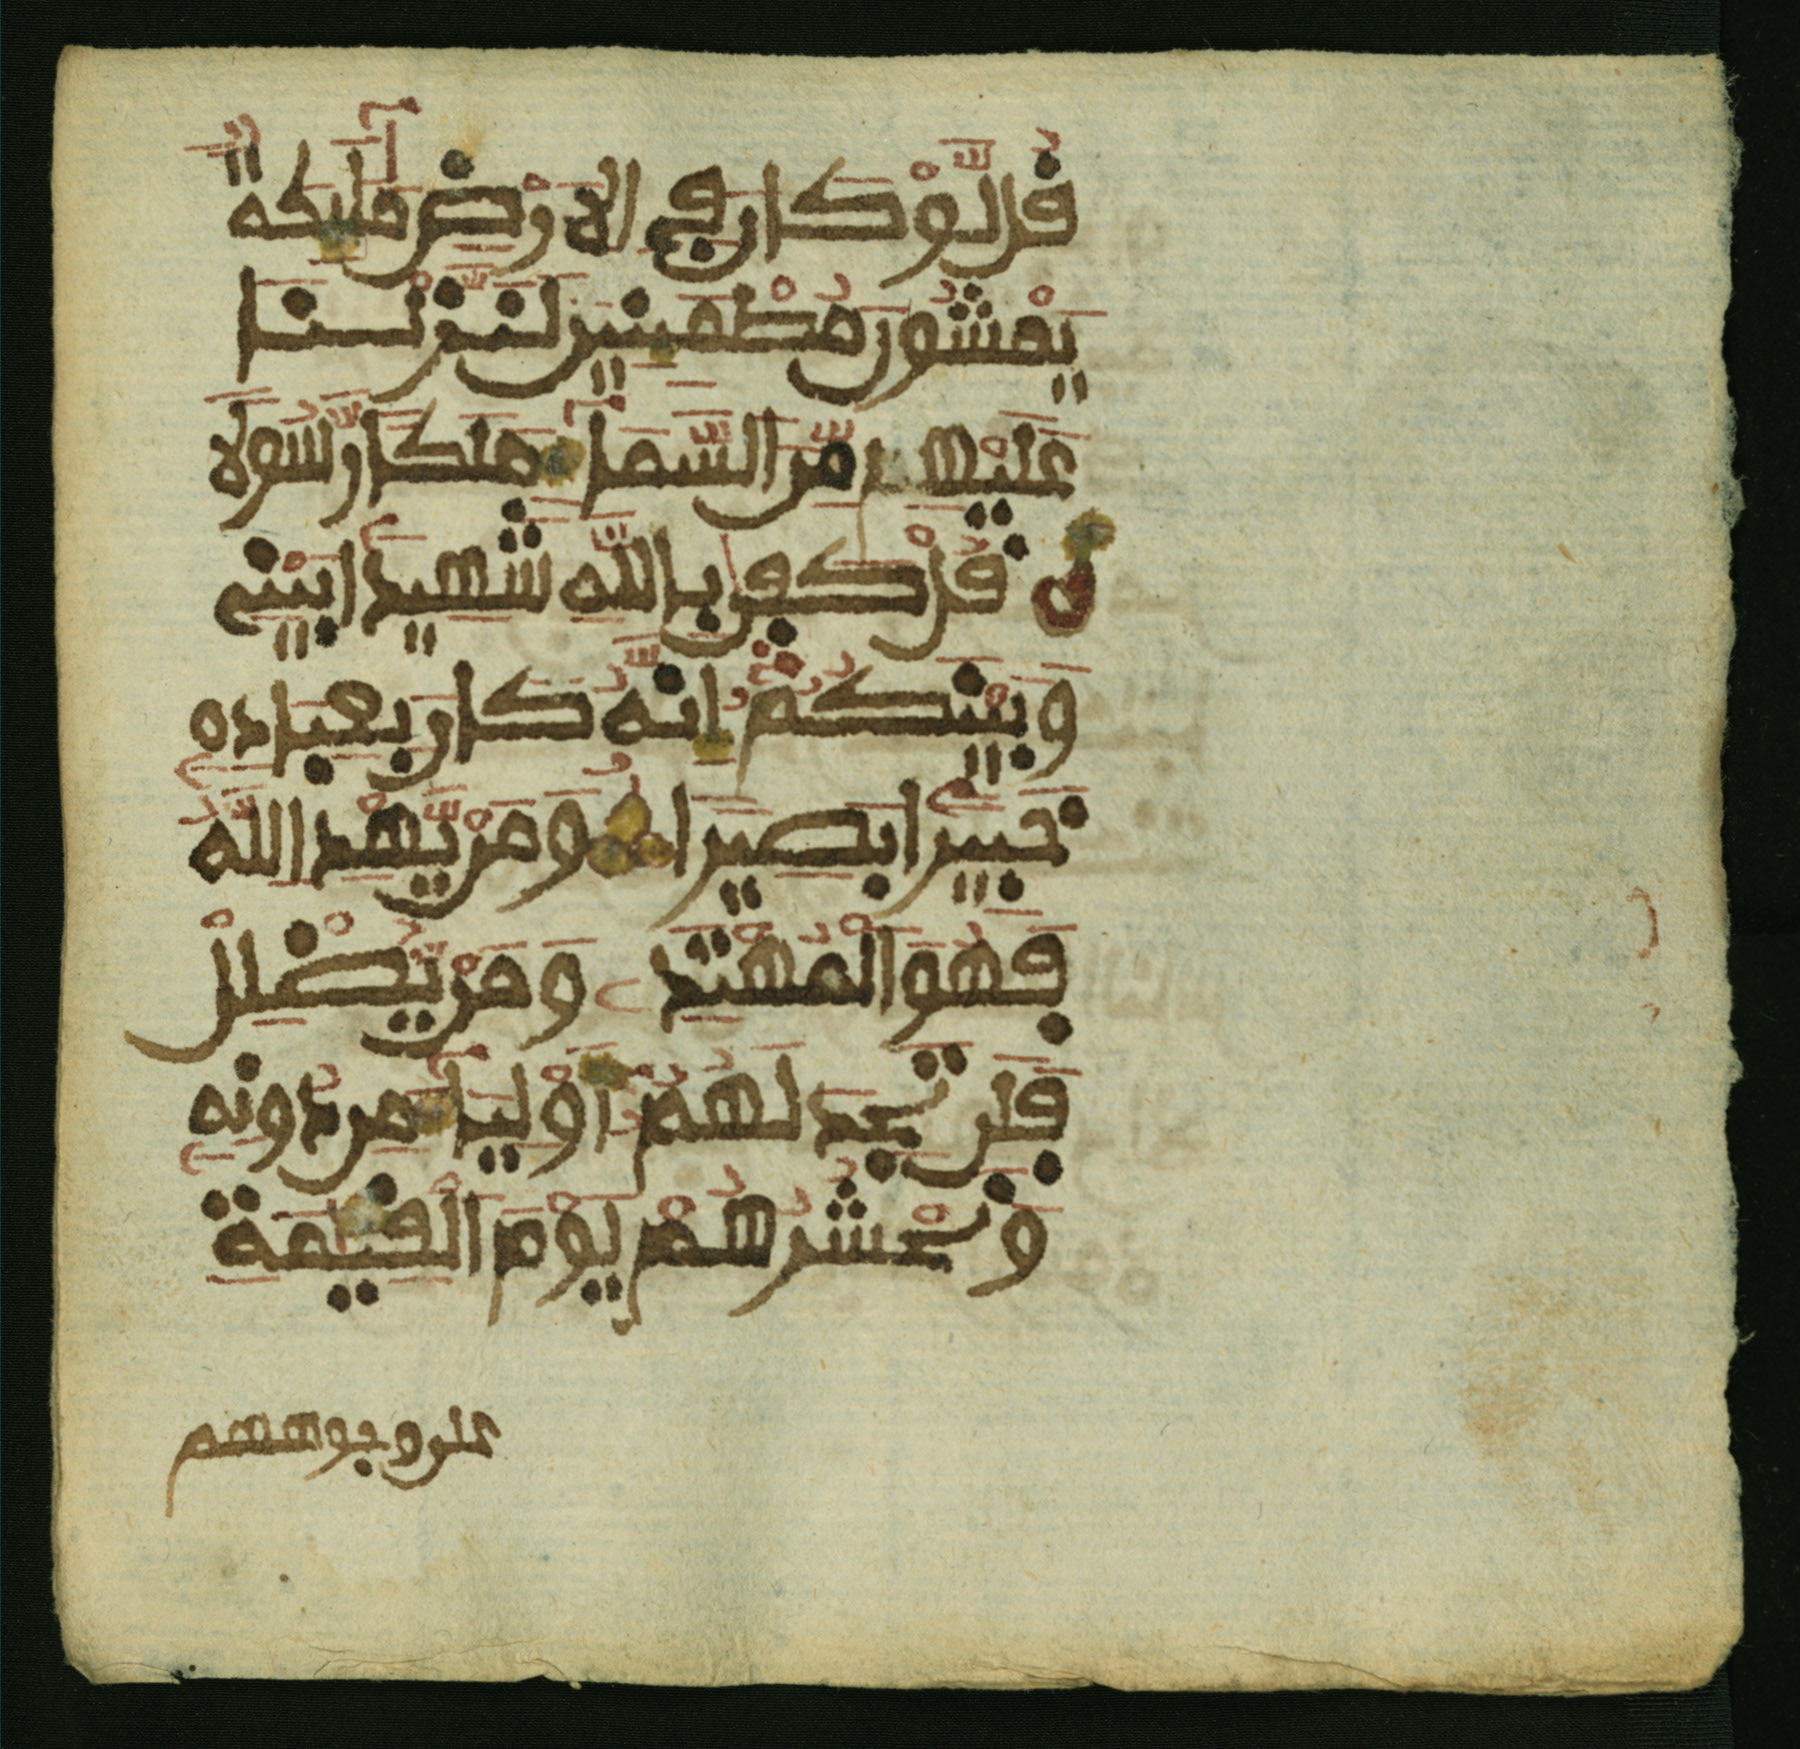 قل لو كان في الارض مليكة
يمشون مطمينين لنزلنا
عليهم من السما ملكا رسولا
قل كفى بالله شهيدا بيني
وبينكم انه كان بعباده
خبيرا بصيرا ومن يهد الله
فهو المهتد ومن يضلل
فلن تجد لهم اوليا من دونه
ونحشرهم يوم القيمة
على وجوههم